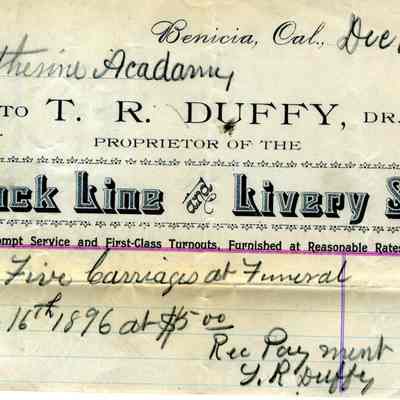 Benicia, Cal., Dec
therine Acadamy
TO T. R. DUFFY, DR.
PROPRIETOR OF THE
uck Line and Livery S
ompt Service and First-Class Turnouts, Furnished at Reasonable Rates
Five Carriages at Funeral
16th 1896 at $5.00
Rec Payment
T. R Duffy